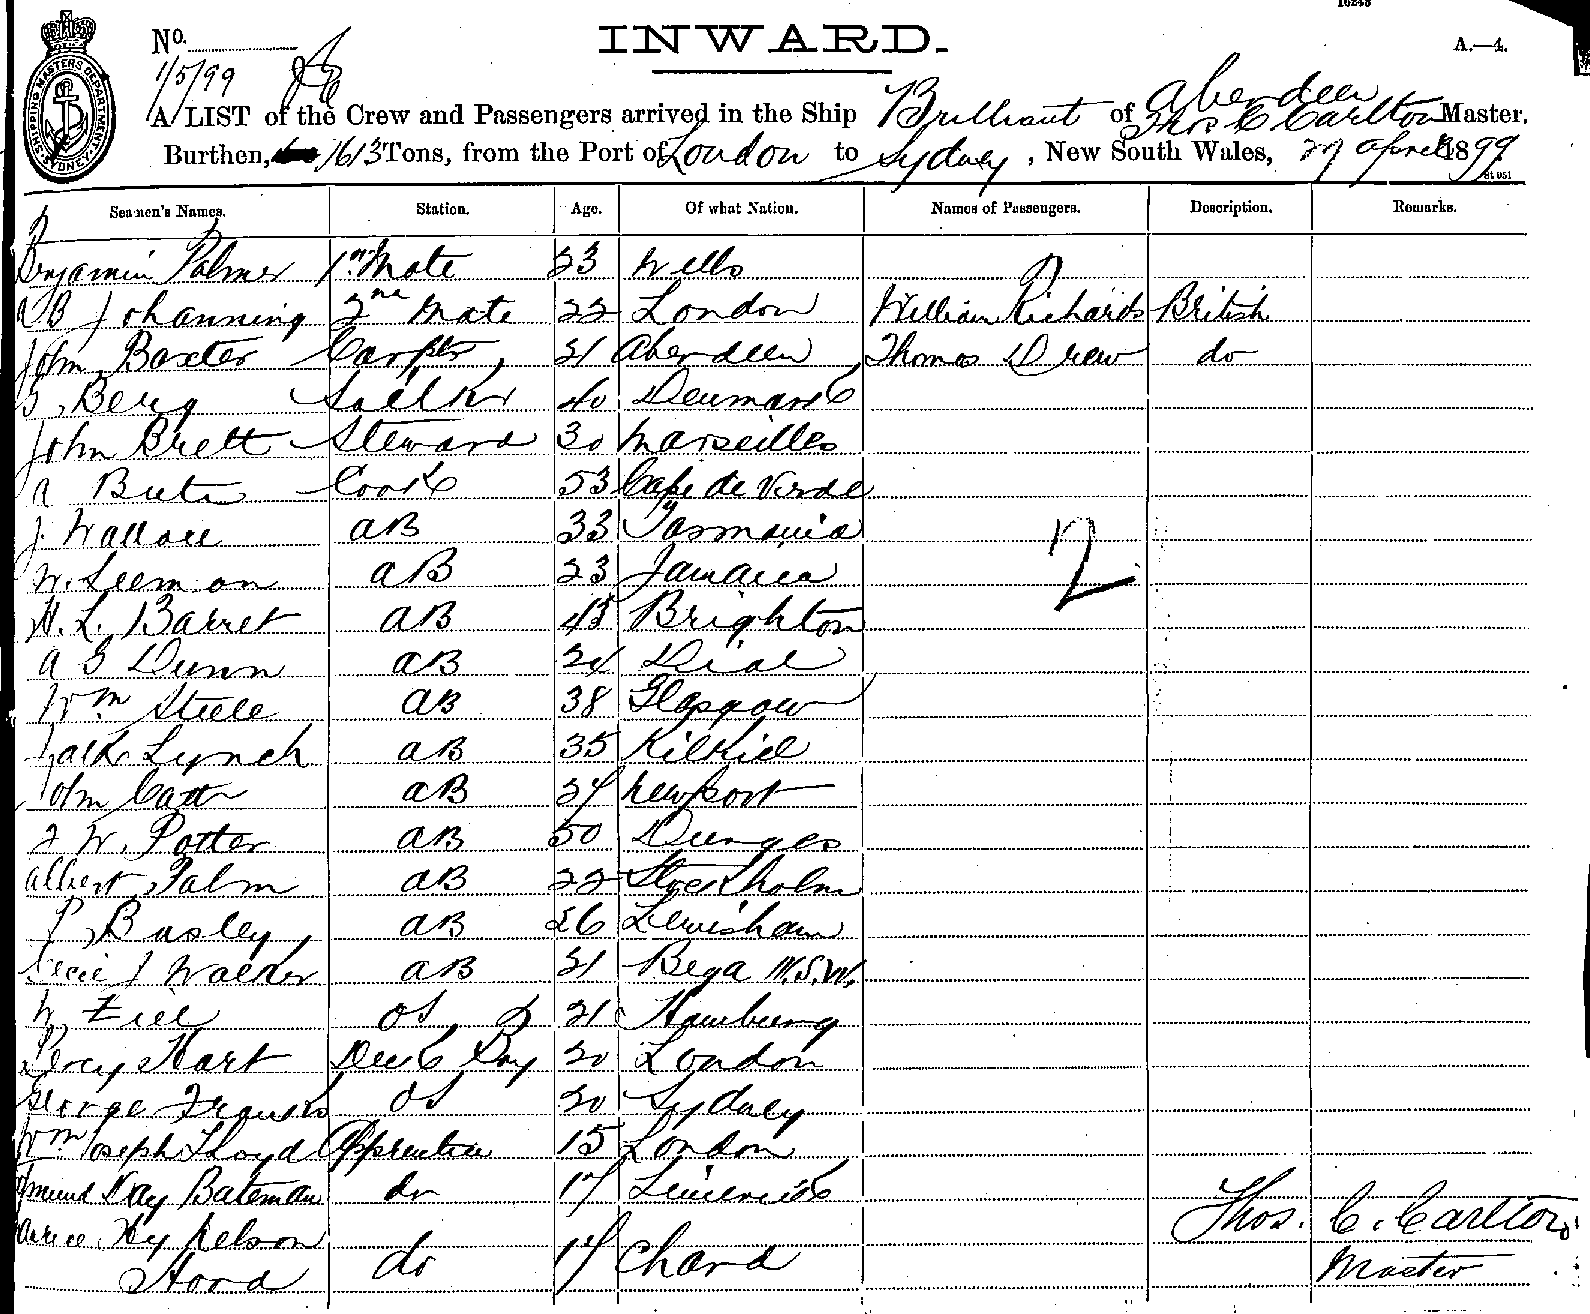 16243
INWARD.
No.
A.—4.
1/5/99
SHIPPING MASTERS DEPARTMENT SYDNEY
A LIST of the Crew and Passengers arrived in the Ship Brilliant of Aberdeen Thos C Carlton Master,
Burthen, 1613 Tons, from the Port of London to Sydney, New South Wales, 27 April 1899
St 051
Seamen's Names. Station. Age. Of what Nation. Names of Passengers. Description. Remarks.
Benjamin Palmer 1st Mate 23 Wells
B Johanning 2nd Mate 22 London William Richards British
John Baxter Carptr 21 Aberdeen Thomas Drew do
Berg Sailkr 40 Denmark
John Brett Steward 30 Marseilles
A Cook 53 Cape de Verde
J. Wallace AB 33 Tasmania
W. Leemon AB 23 Jamaica
2
H. L. Barret AB 45 Brighton
A G Dunn AB 24 Dial
Wm Steele AB 38 Glasgow
Jack Lynch AB 35 Kilkiel
John Catt AB 27 Newport
W. Potter AB 50 Dunges
Albert Palm AB 22 Stockholm
P Basley AB 26 Lewisham
Walker AB 21 Bega N.S.W.
W OS 21 Hamburg
Percy Hart Deck Boy 20 London
George Franks OS 20 Sydney
Wm Joseph Lloyd Apprentice 15 London
Day Bateman do 17 Limerick
Hy Nelson
Thos. C. Carlton
Hood do 17 Chard
Master